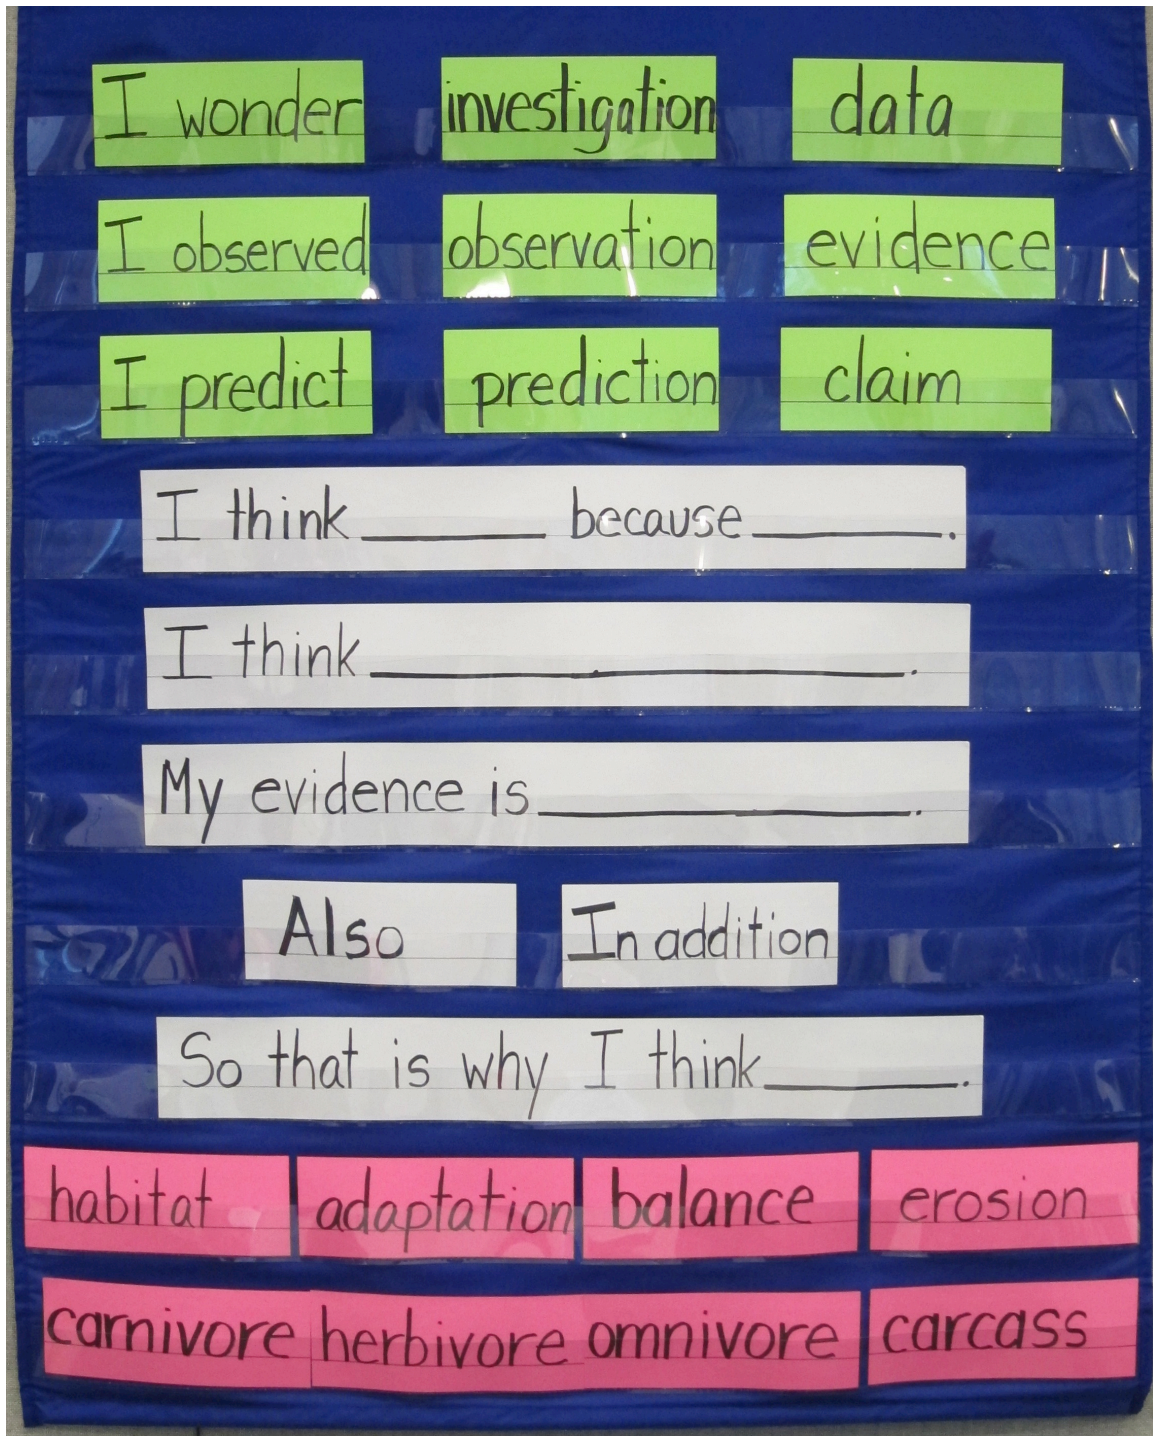 I wonder investigation data
I observed observation evidence
I predict prediction claim
I think______ because______.
I think____________________.
My evidence is______________.
Also In addition
So that is why I think______.
habitat adaptation balance erosion
carnivore herbivore omnivore carcass